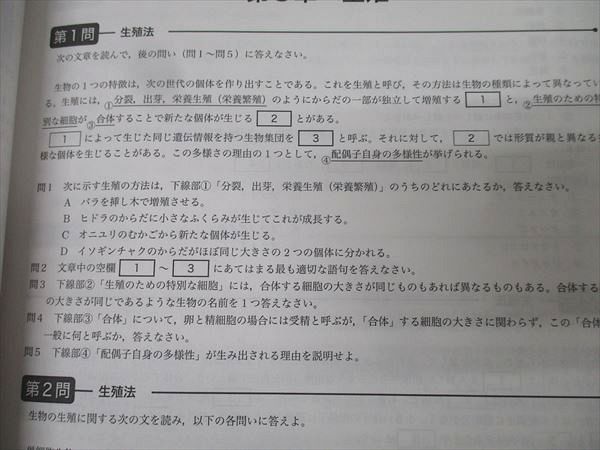 第1問 生殖法
次の文章を読んで，後の問い（問1～問5）に答えなさい。
生物の1つの特徴は，次の世代の個体を作り出すことである。これを生殖と呼び，その方法は生物の種類によって異なってい
る。生殖には，①分裂，出芽，栄養生殖（栄養繁殖）のようにからだの一部が独立して増殖する 1 と，②生殖のための特
別な細胞が③合体することで新たな個体が生じる 2 とがある。
1 によって生じた同じ遺伝情報を持つ生物集団を 3 と呼ぶ。それに対して， 2 では形質が親と異なる多
様な個体を生じることがある。この多様さの理由の1つとして，④配偶子自身の多様性が挙げられる。
問1 次に示す生殖の方法は，下線部①「分裂，出芽，栄養生殖（栄養繁殖）」のうちのどれにあたるか，答えなさい。
A バラを挿し木で増殖させる。
B ヒドラのからだに小さなふくらみが生じてこれが成長する。
C オニユリのむかごから新たな個体が生じる。
D イソギンチャクのからだがほぼ同じ大きさの2つの個体に分かれる。
問2 文章中の空欄 1 ～ 3 にあてはまる最も適切な語句を答えなさい。
問3 下線部②「生殖のための特別な細胞」には，合体する細胞の大きさが同じものもあれば異なるものもある。合体する
の大きさが同じであるような生物の名前を1つ答えなさい。
問4 下線部③「合体」について，卵と精細胞の場合には受精と呼ぶが，「合体」する細胞の大きさに関わらず，この「合体
一般に何と呼ぶか，答えなさい。
問5 下線部④「配偶子自身の多様性」が生み出される理由を説明せよ。
第2問 生殖法
生物の生殖に関する次の文を読み，以下の各問いに答えよ。